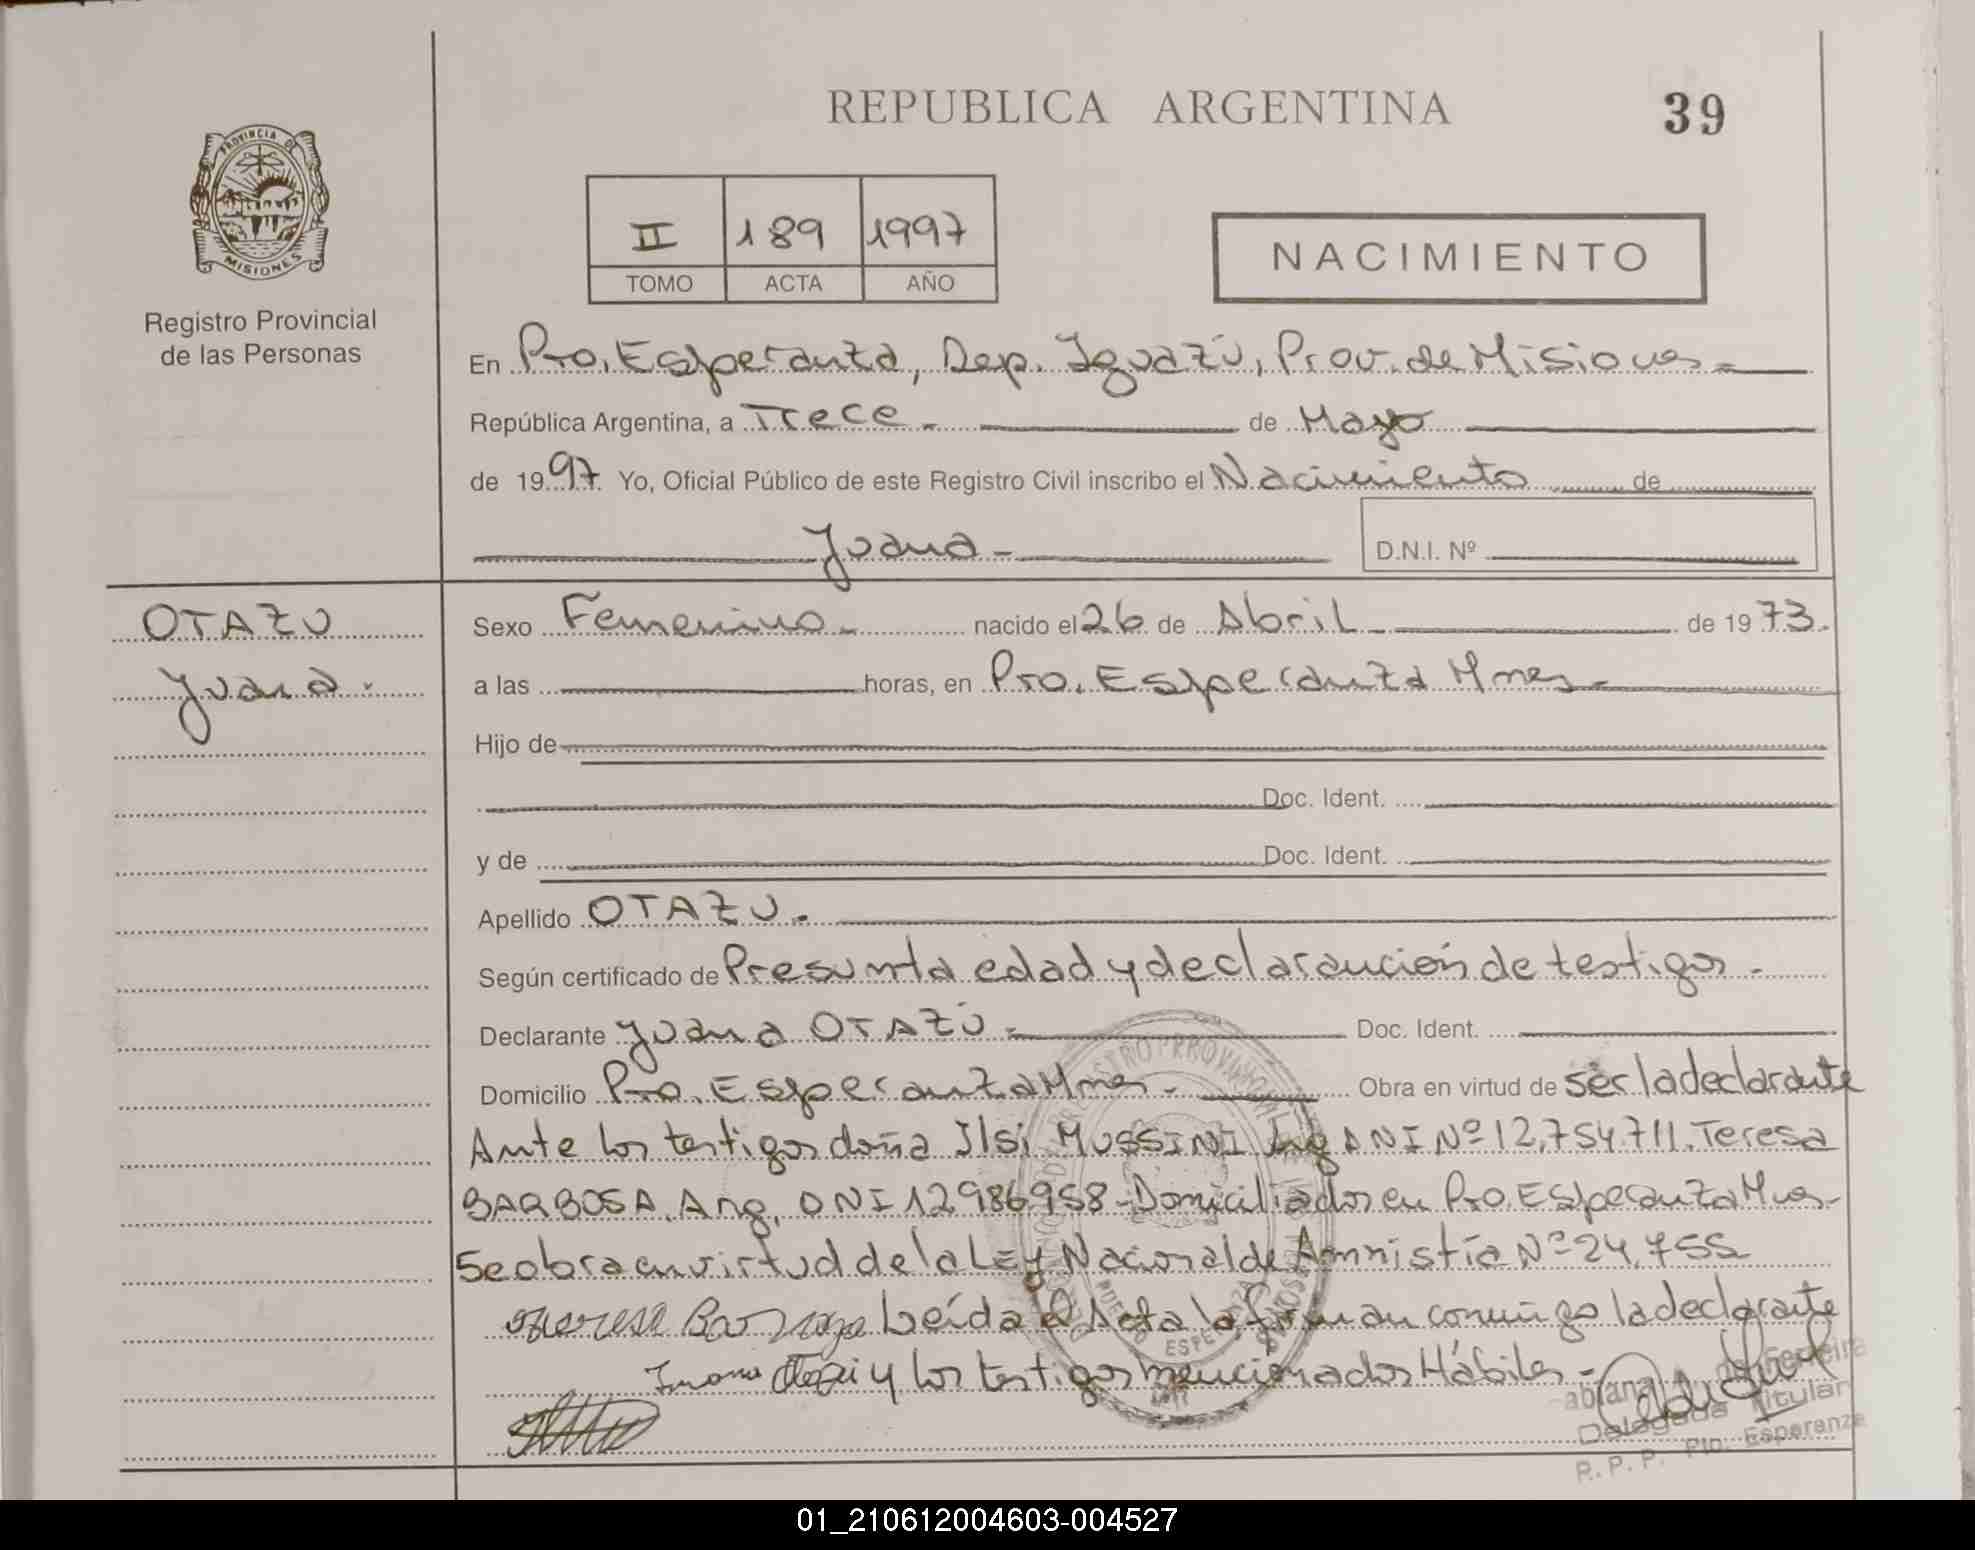 REPUBLICA ARGENTINA
39
PROVINCIA DE
MISIONES
Registro Provincial
de las Personas
II 189 1997
TOMO ACTA AÑO
NACIMIENTO
En Pto. Esperanza, Dep. Iguazú, Prov. de Misiones
República Argentina, a Trece de Mayo
de 1997 Yo, Oficial Público de este Registro Civil inscribo el Nacimiento de
Juana
D.N.I. Nº
OTAZU
Juana
Sexo Femenino nacido el 26 de Abril de 1973
a las horas, en Pto. Esperanza Mnes
Hijo de
Doc. Ident.
y de Doc. Ident.
Apellido OTAZU.
Según certificado de Presunta edad y declaraución de testigos.
Declarante Juana OTAZÚ Doc. Ident.
Domicilio Pto. Esperanza Mnes. Obra en virtud de ser la declarante
Ante los testigos doña Ilsi MUSSINI DNI Nº 12,754711. Teresa
BARBOSA, Arg, DNI 12986958 - Domiciliados en Pto. Esperanza Mnes-
Se obra en virtud de la LEy Nacional de Amnistía Nº 24,755
Barboza Leída el Acta la firman conmigo la declarante
y los testigos mencionados Hábiles -
Ferreira
Delegada Titular
R. P. P. Pto. Esperanza
01_210612004603-004527